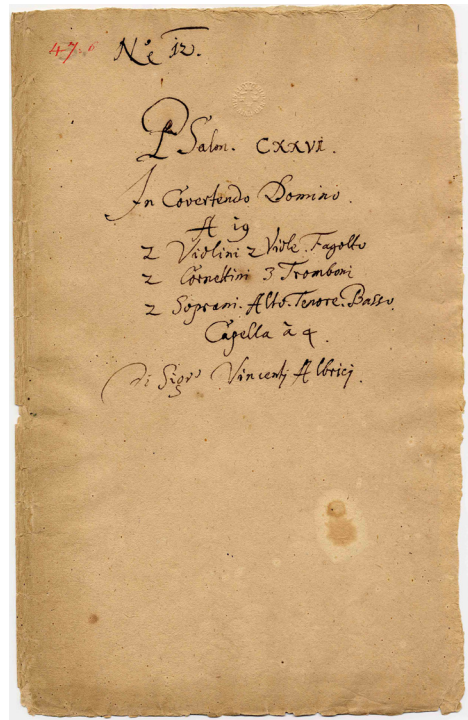 47.
No 12.
Psalm. CXXVI.
In Covertendo Domino.
A 19
2 Violini 2 Viole. Fagotto
2 Cornettini 3 Tromboni
2 Soprani. Alto. Tenore. Basso
Capella à 4.
Di Sigro Vincenti Albrici.